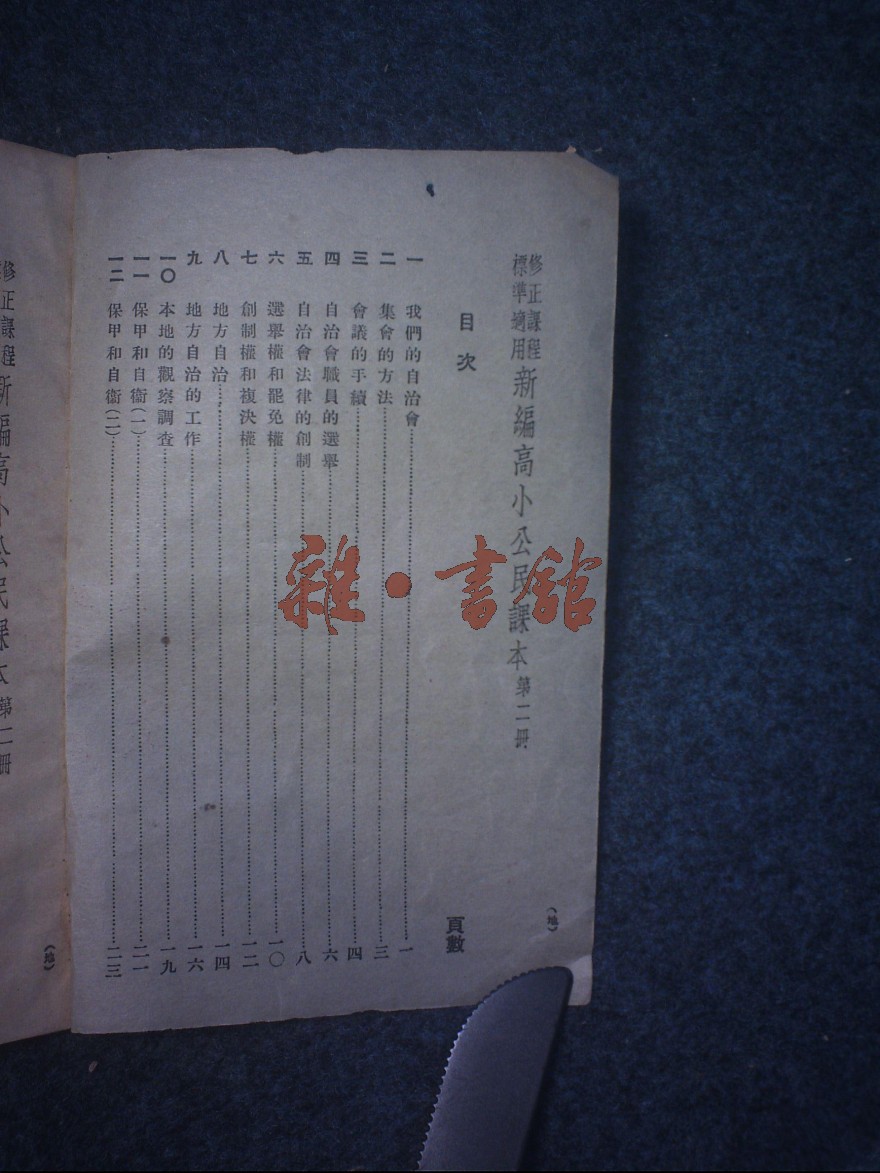 修正課程標準適用 新編高小公民課本 第二冊
(地)
目次
頁數
一 我們的自治會 一
二 集會的方法 三
三 會議的手續 四
四 自治會職員的選舉 六
五 自治會法律的創制 八
六 選舉權和罷免權 一〇
七 創制權和複決權 一二
八 地方自治 一四
九 地方自治的工作 一六
一〇 本地的觀察調查 一九
一一 保甲和自衞(一) 二一
一二 保甲和自衞(二) 二三
雜·書館
修正課程
新編高小公民課本 第二冊
(地)